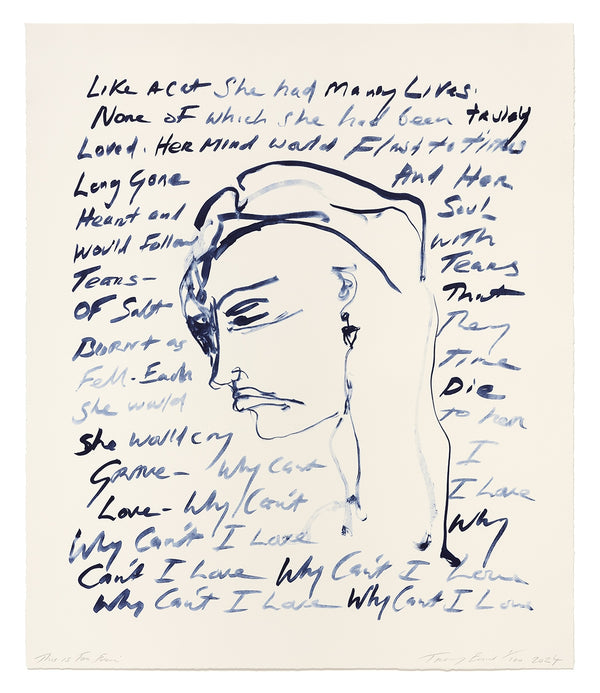 Like A Cat She had Many Lives.
None OF which she had been truley
Loved. Her Mind would Flash to times
Long Gone And Her
Heart and Soul
Would Follow with
Tears- Tears
OF Salt That
Burnt as They
Fell. Each Time
She would Die
She would cry to her
Grave- Why Cant I
Love- Why Can't I Love
Why Can't I Love Why
Can't I Love Why Can't I Love
Why Can't I Love Why Can't I Love
This is For Tracey Emin 2024